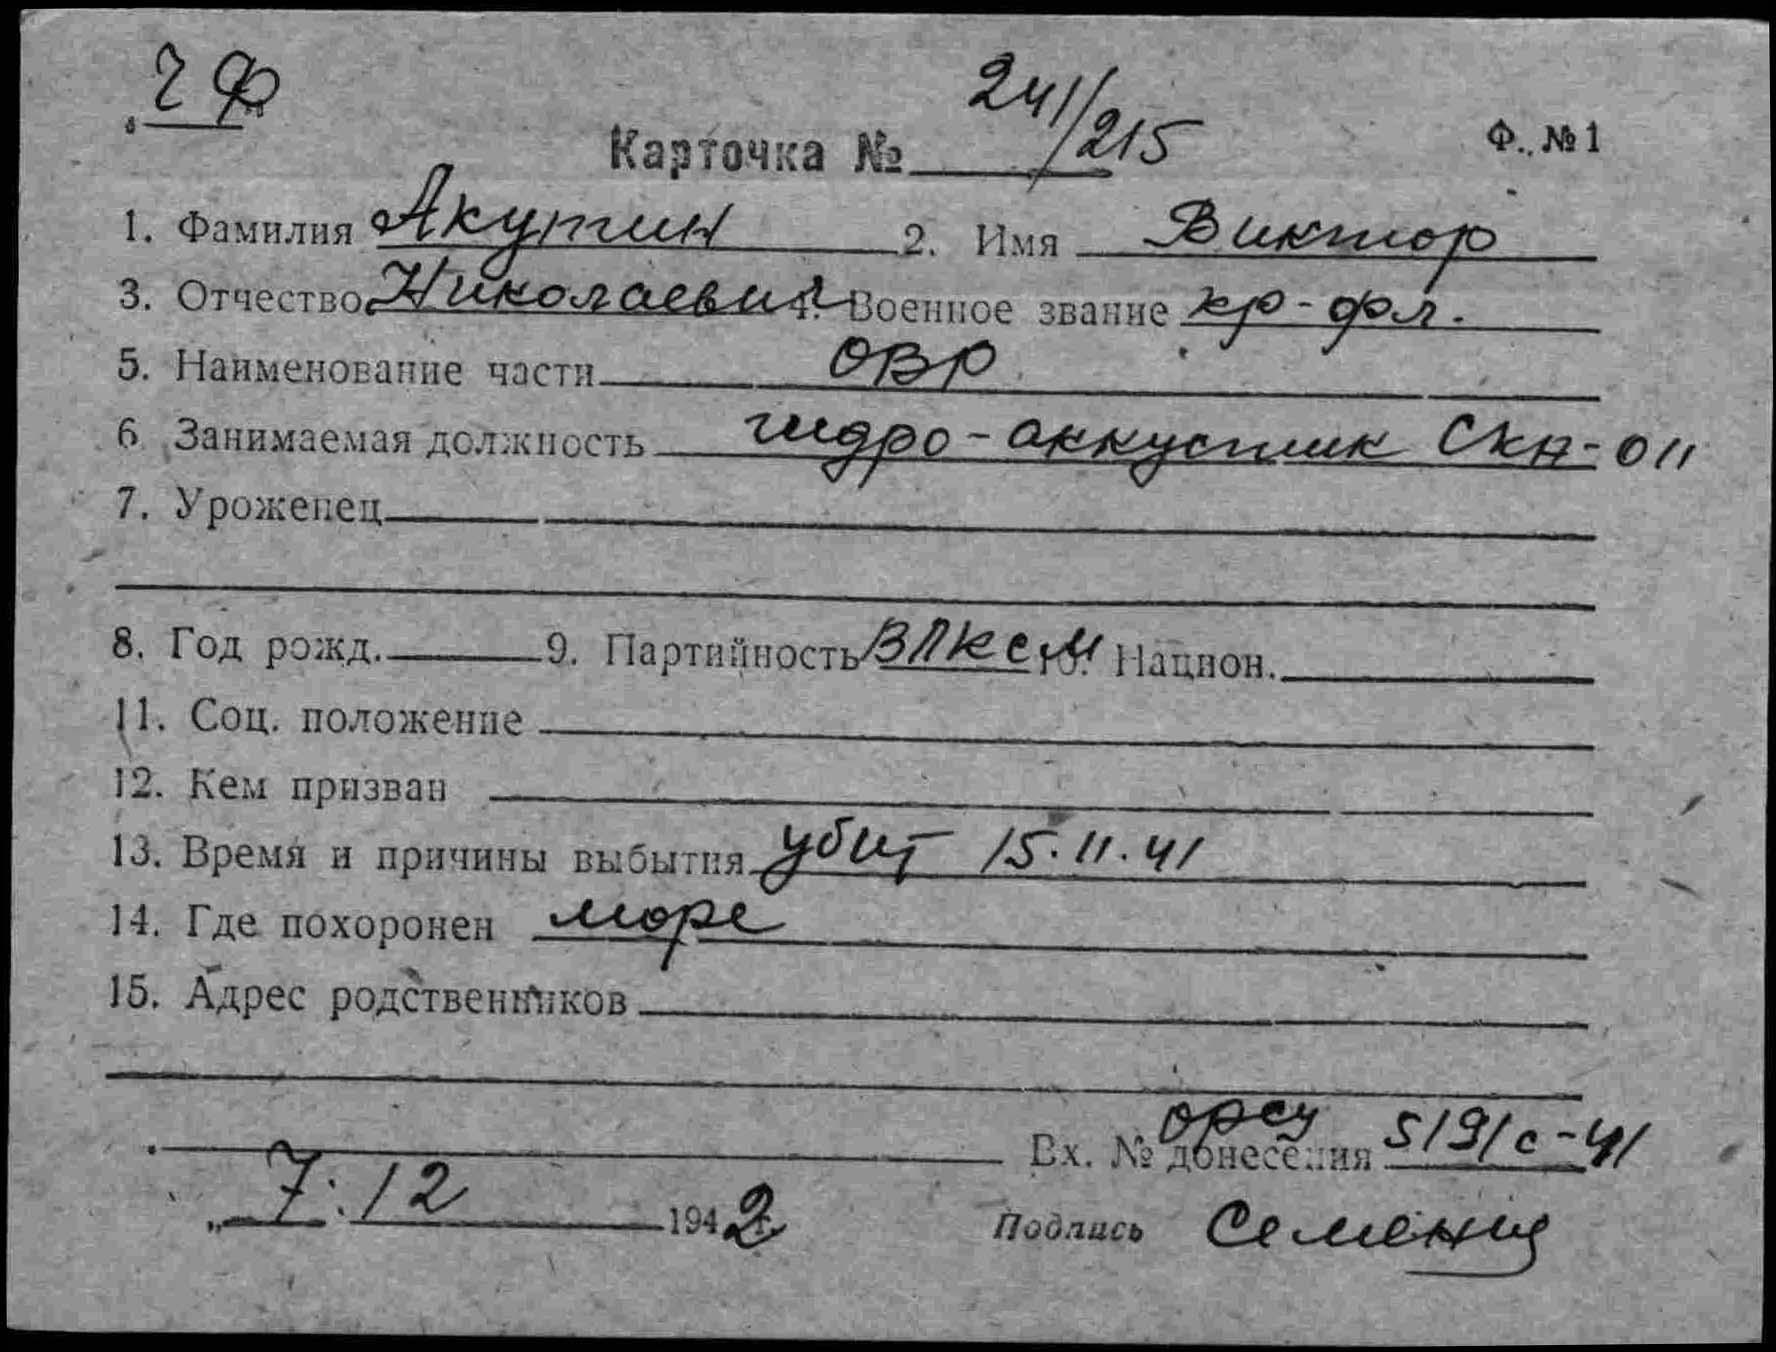 ЧФ
Карточка № 241/215 Ф. № 1
1. Фамилия Акутин 2. Имя Виктор
3. Отчество Николаевич 4. Военное звание кр-фл.
5. Наименование части ОВР
6 Занимаемая должность гидро-аккустик СКА-011
7. Уроженец
8. Год рожд. 9. Партийность ВЛКСМ 10. Национ.
11. Соц. положение
12. Кем призван
13. Время и причины выбытия убит 15.11.41
14. Где похоронен море
15. Адрес родственников
орсу
Вх. № донесения 5191с-41
7.12 1942 Подпись